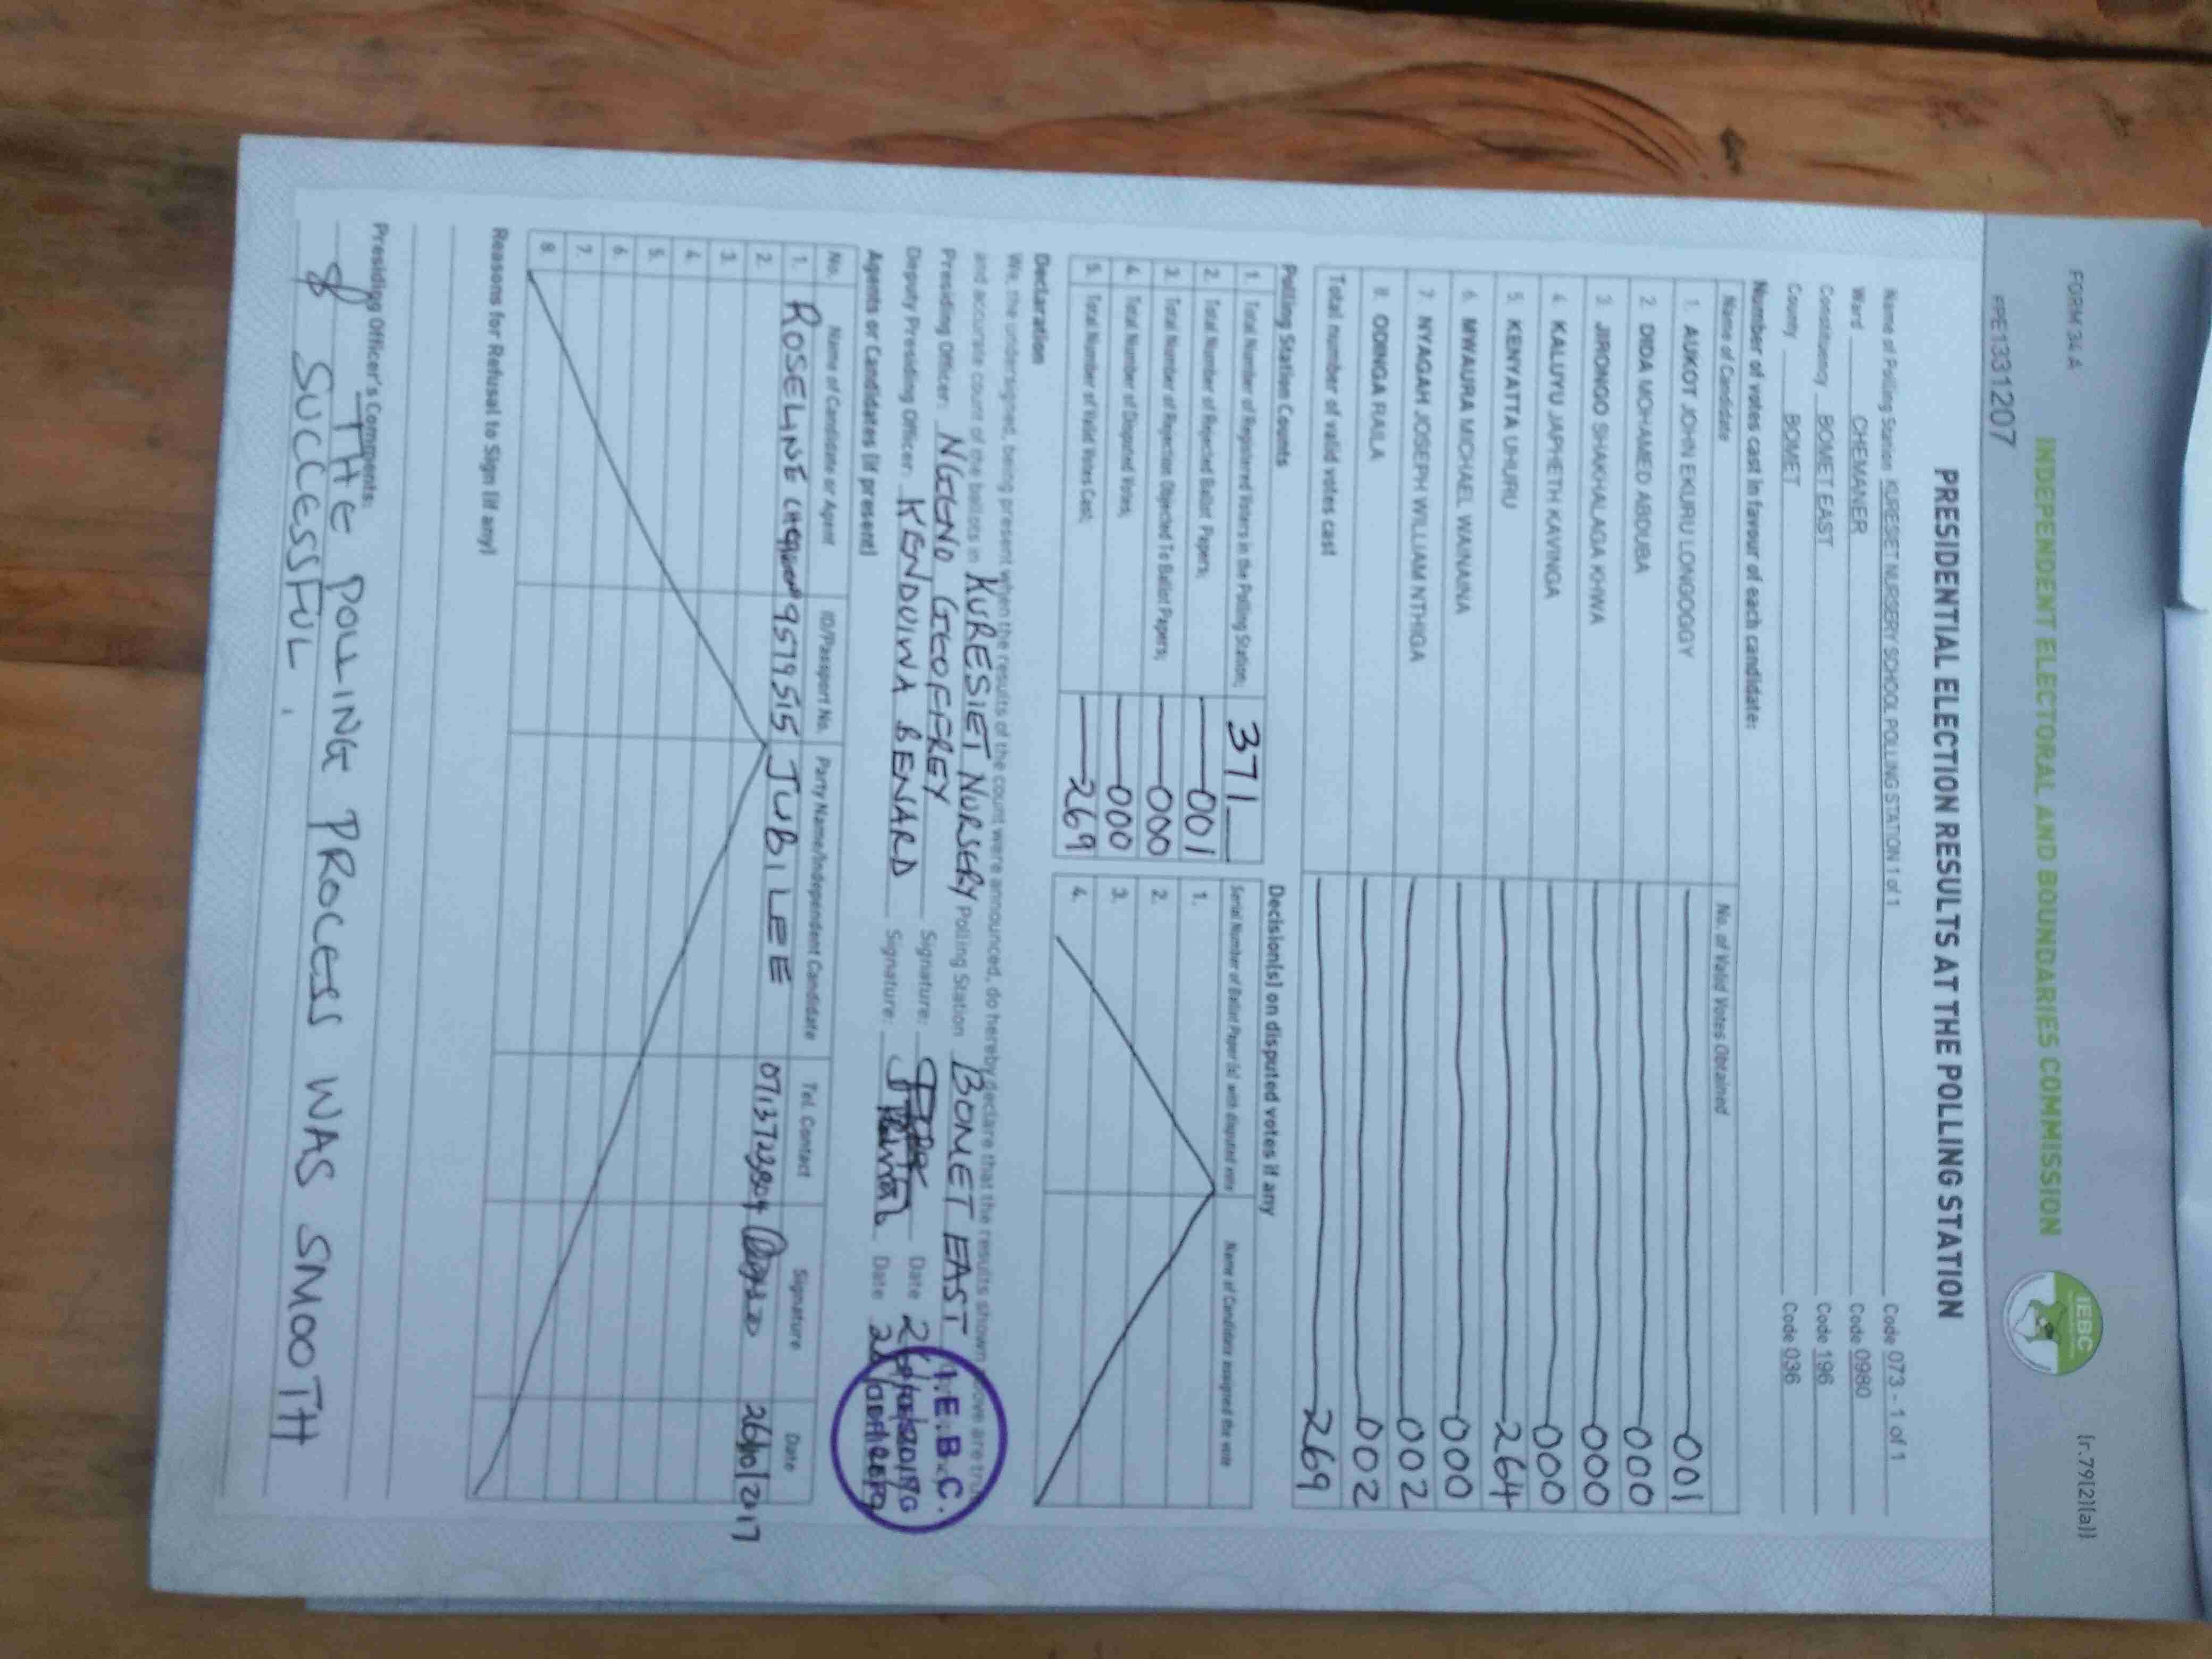 FORM 34 A
(r.79(2)(a))
INDEPENDENT ELECTORAL AND BOUNDARIES COMMISSION
IEBC
PPE1331207
PRESIDENTIAL ELECTION RESULTS AT THE POLLING STATION
Name of Polling Station KURESIET NURSERY SCHOOL POLLING STATION 1 of 1 Code 073 - 1 of 1
Ward CHEMANER Code 0980
Constituency BOMET EAST Code 196
County BOMET Code 036
Number of votes cast in favour of each candidate:
Name of Candidate No. of Valid Votes Obtained
1. AUKOT JOHN EKURU LONGOGGY 001
2. DIDA MOHAMED ABDUBA 000
3. JIRONGO SHAKHALAGA KHWA 000
4. KALUYU JAPHETH KAVINGA 000
5. KENYATTA UHURU 264
6. MWAURA MICHAEL WAINAINA 000
7. NYAGAH JOSEPH WILLIAM NTHIGA 002
8. ODINGA RAILA 002
Total number of valid votes cast 269
Polling Station Counts
1. Total Number of Registered Voters in the Polling Station; 371
2. Total Number of Rejected Ballot Papers; 001
3. Total Number of Rejection Objected To Ballot Papers; 000
4. Total Number of Disputed Votes; 000
5. Total Number of Valid Votes Cast; 269
Decision(s) on disputed votes if any
Serial Number of Ballot Paper (s) with disputed vote Name of Candidate assigned the vote
1.
2.
3.
4.
Declaration
We, the undersigned, being present when the results of the count were announced, do hereby declare that the results shown above are true
and accurate count of the ballots in KURESIET NURSERY Polling Station BOMET EAST
Presiding Officer: NGENO GEOFFREY Signature: Date
Deputy Presiding Officer: KENDUIWA BENARD Signature: Date
I.E.B.C.
Agents or Candidates (if present)
No. Name of Candidate or Agent ID/Passport No. Party Name/Independent Candidate Tel. Contact Signature Date
1. ROSELINE 9579515 JUBILEE 26/10/2017
2.
3.
4.
5.
6.
7.
8.
Reasons for Refusal to Sign (if any)
Presiding Officer's Comments:
THE POLLING PROCESS WAS SMOOTH
& SUCCESSFUL.